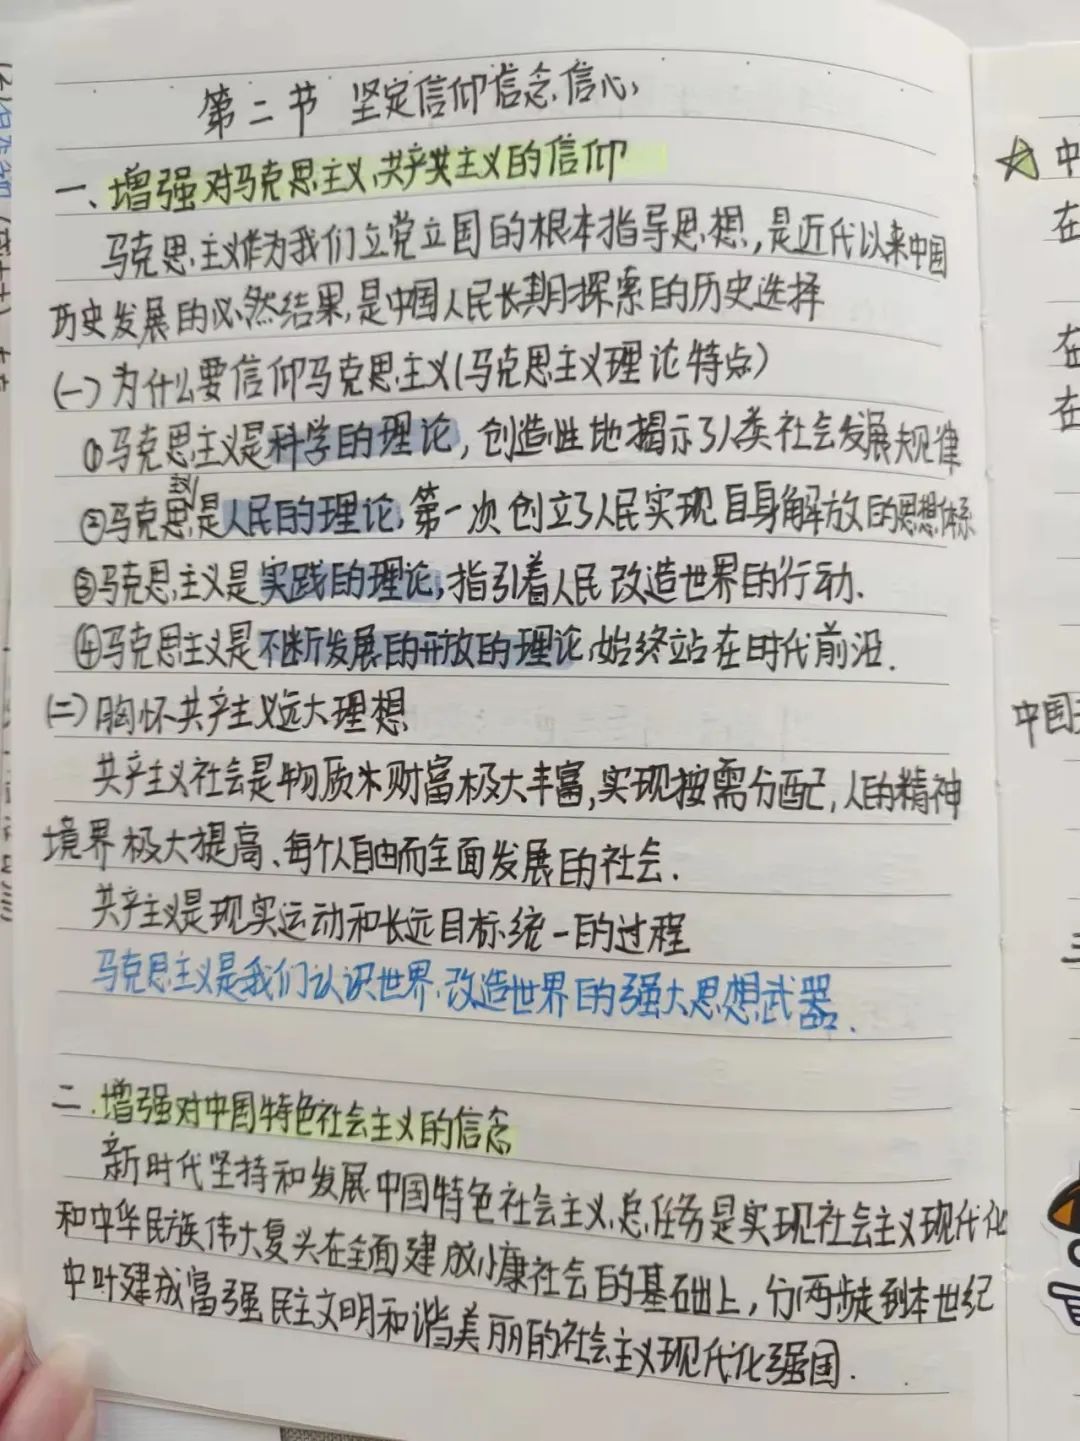 第二节 坚定信仰信念信心
一、增强对马克思主义、共产主义的信仰
马克思主义作为我们立党立国的根本指导思想,是近代以来中国
历史发展的必然结果,是中国人民长期探索的历史选择
(一)为什么要信仰马克思主义(马克思主义理论特点)
①马克思主义是科学的理论,创造性地揭示了人类社会发展规律
②马克思主义是人民的理论,第一次创立了人民实现自身解放的思想体系
③马克思主义是实践的理论,指引着人民改造世界的行动.
④马克思主义是不断发展的开放的理论,始终站在时代前沿.
(二)胸怀共产主义远大理想
共产主义社会是物质财富极大丰富,实现按需分配,人的精神
境界极大提高、每个人自由而全面发展的社会.
共产主义是现实运动和长远目标统一的过程
马克思主义是我们认识世界、改造世界的强大思想武器.
二.增强对中国特色社会主义的信念
新时代坚持和发展中国特色社会主义,总任务是实现社会主义现代化
和中华民族伟大复兴在全面建成小康社会的基础上,分两步走到本世纪
中叶建成富强民主文明和谐美丽的社会主义现代化强国.
中
在
在
在
中国
三